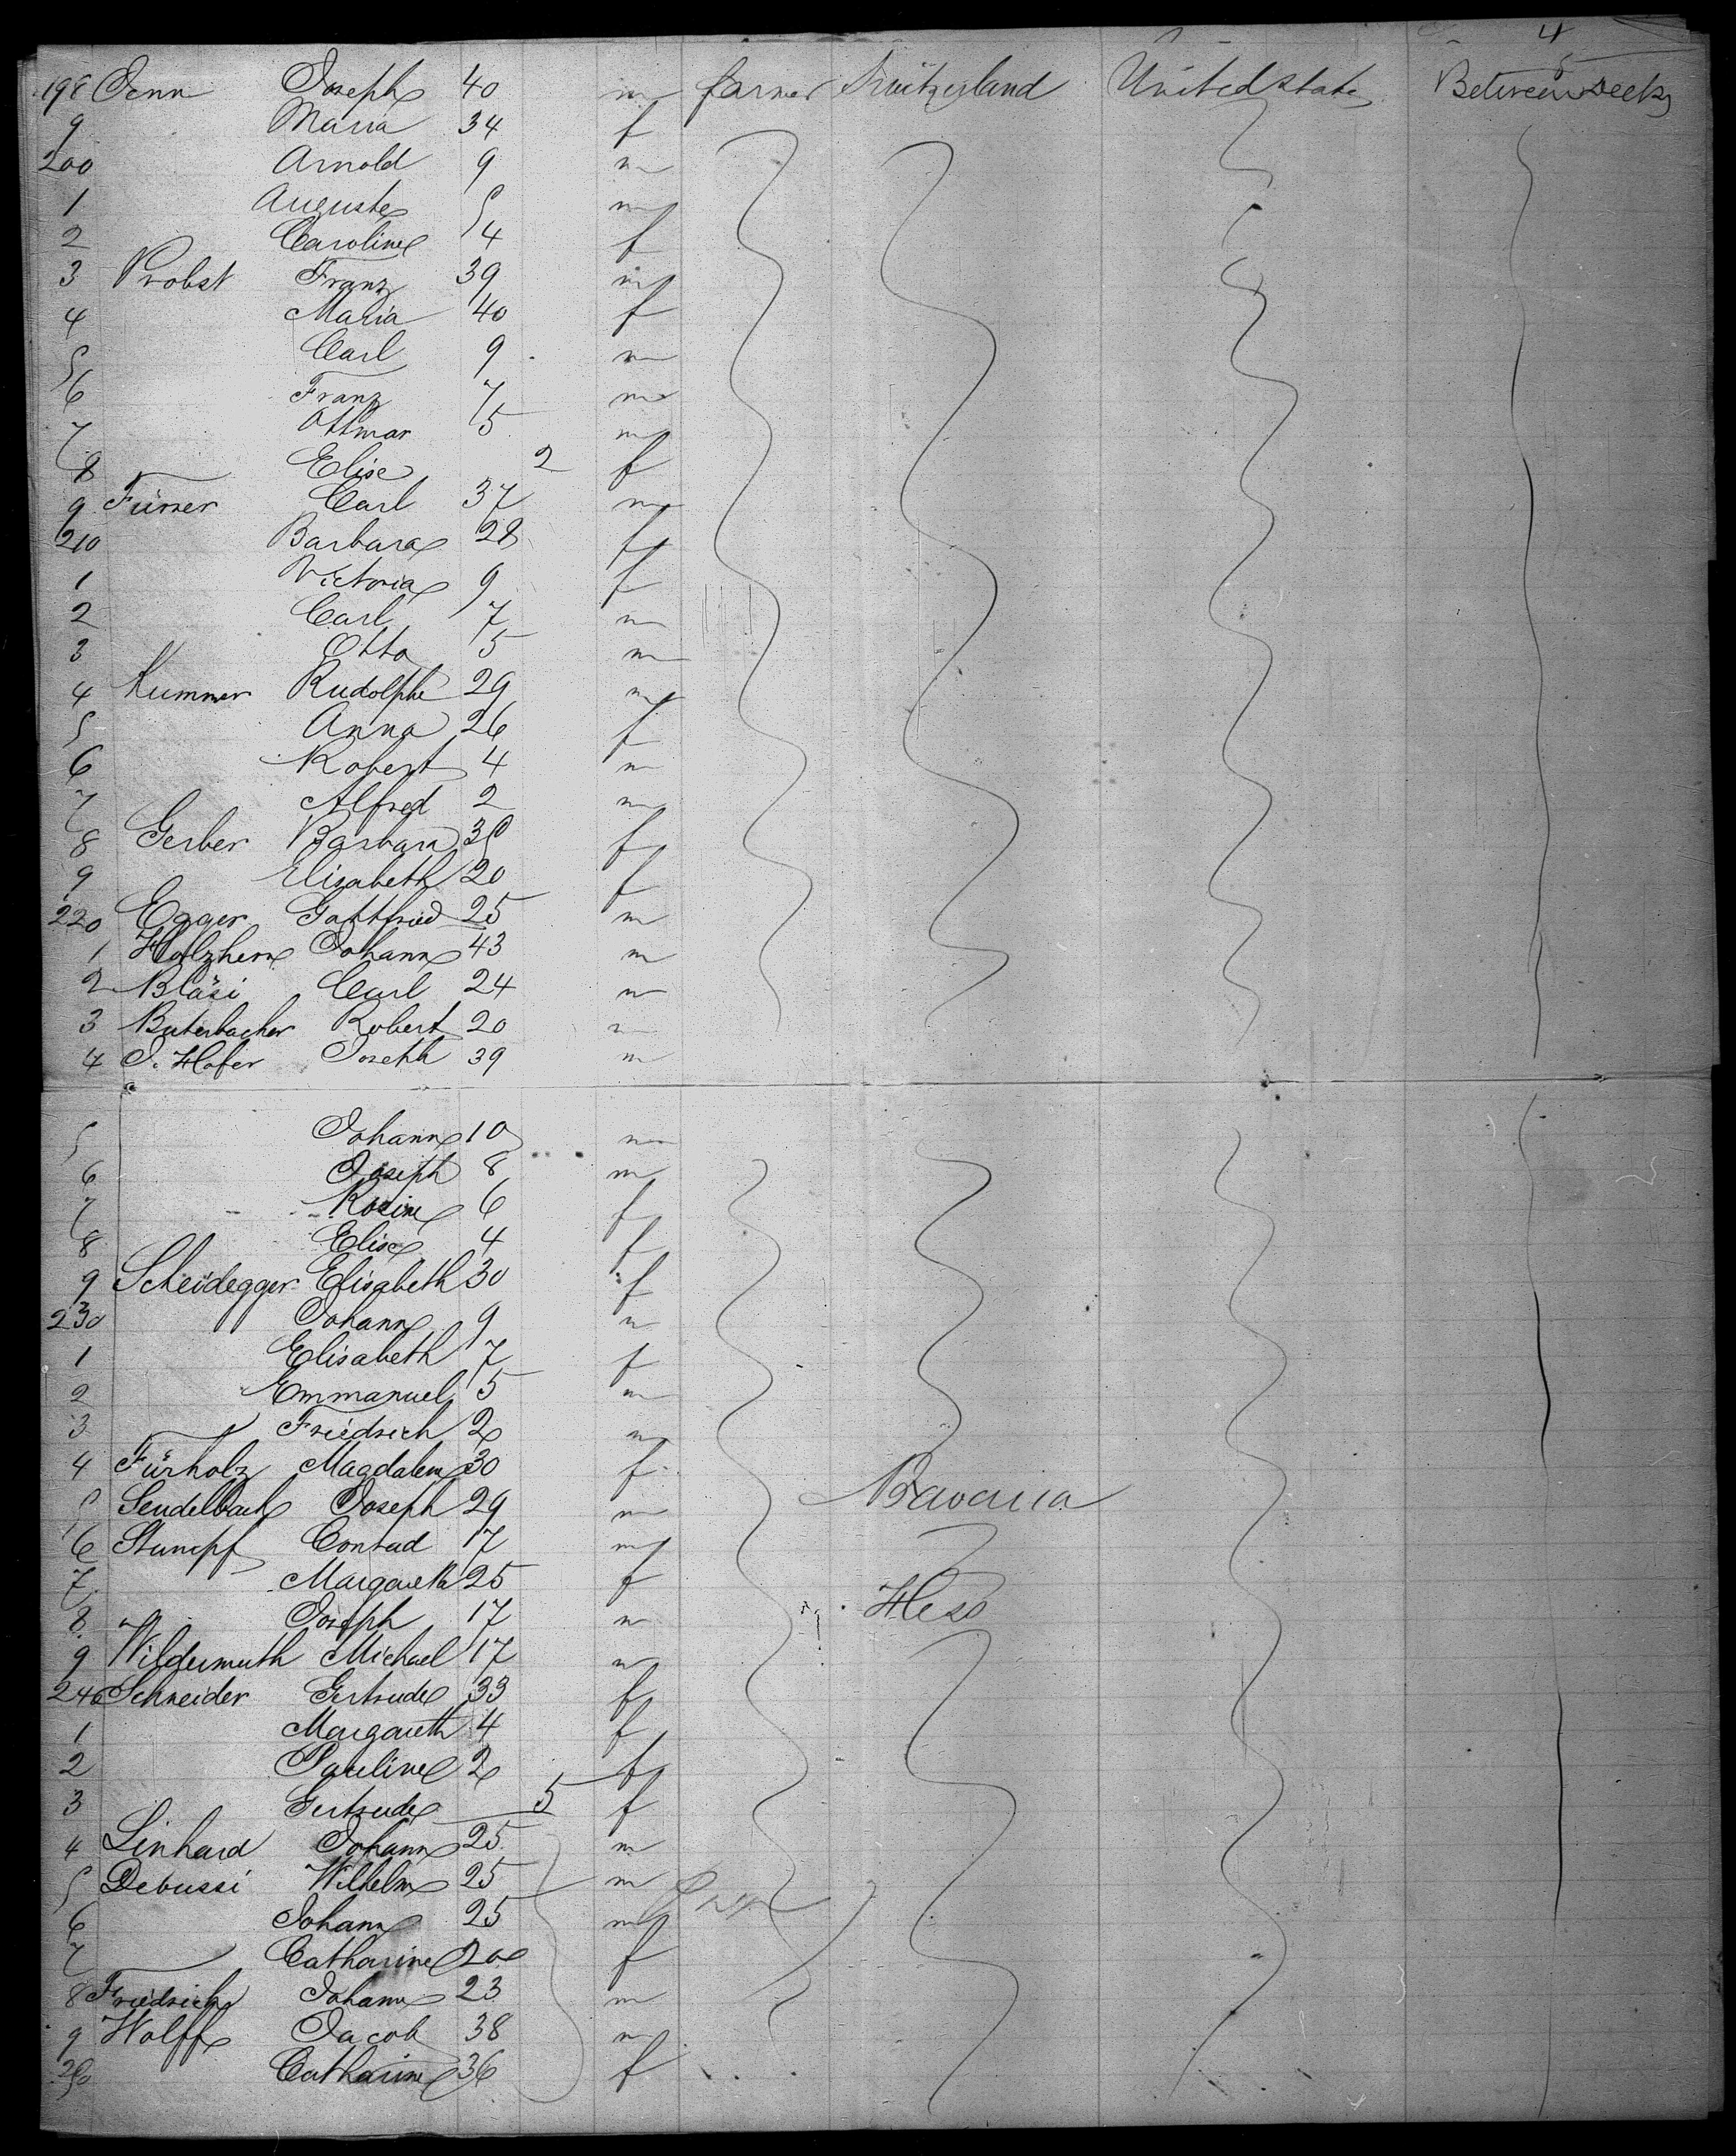 4
198 Jenn Joseph 40 m farmer Switzerland United state Between decks
9 Maria 34 f
200 Arnold 9 m
1 Auguste 5 m
2 Caroline 4 f
3 Probst Franz 39 m
4 Maria 40 f
5 Carl 9 m
6 Franz 7 m
7 Ottmar 5 m
8 Elise 2 f
9 Fürrer Carl 37 m
210 Barbara 28 f
1 Victoria 9 f
2 Carl 7 m
3 Otto 5 m
4 Kummer Rudolphe 29 m
5 Anna 26 f
6 Robert 4 m
7 Alfred 2 m
8 Gerber Barbara 35 f
9 Elisabeth 20 f
220 Egger Gottfried 25 m
1 Holzherr Johann 43 m
2 Bläsi Carl 24 m
3 Buterbacher Robert 20 m
4 J. Hofer Joseph 39 m
5 Johann 10 m
6 Joseph 8 m
7 Rosine 6 f
8 Elise 4 f
9 Scheidegger Elisabeth 30 f
230 Johann 9 m
1 Elisabeth 7 f
2 Emmanuel 5 m
3 Friedrich 2 m
4 Fürholz Magdalena 30 f
5 Sendelbach Joseph 29 m Bavaria
6 Stumpf Conrad 17 m
7 Margaretha 25 f
8 " Joseph 17 m Hess
9 Wildermuth Michael 17 m
240 Schneider Gertrude 33 f
1 Margareth 4 f
2 Pauline 2 f
3 Gertrude 5 f
4 Linhard Johann 25 m
5 Debussi Wilhelm 25 m
6 Johann 25 m
7 Catharine 20 f
8 Friedrich Johann 23 m
9 Wolff Jacob 38 m
250 Catharine 36 f